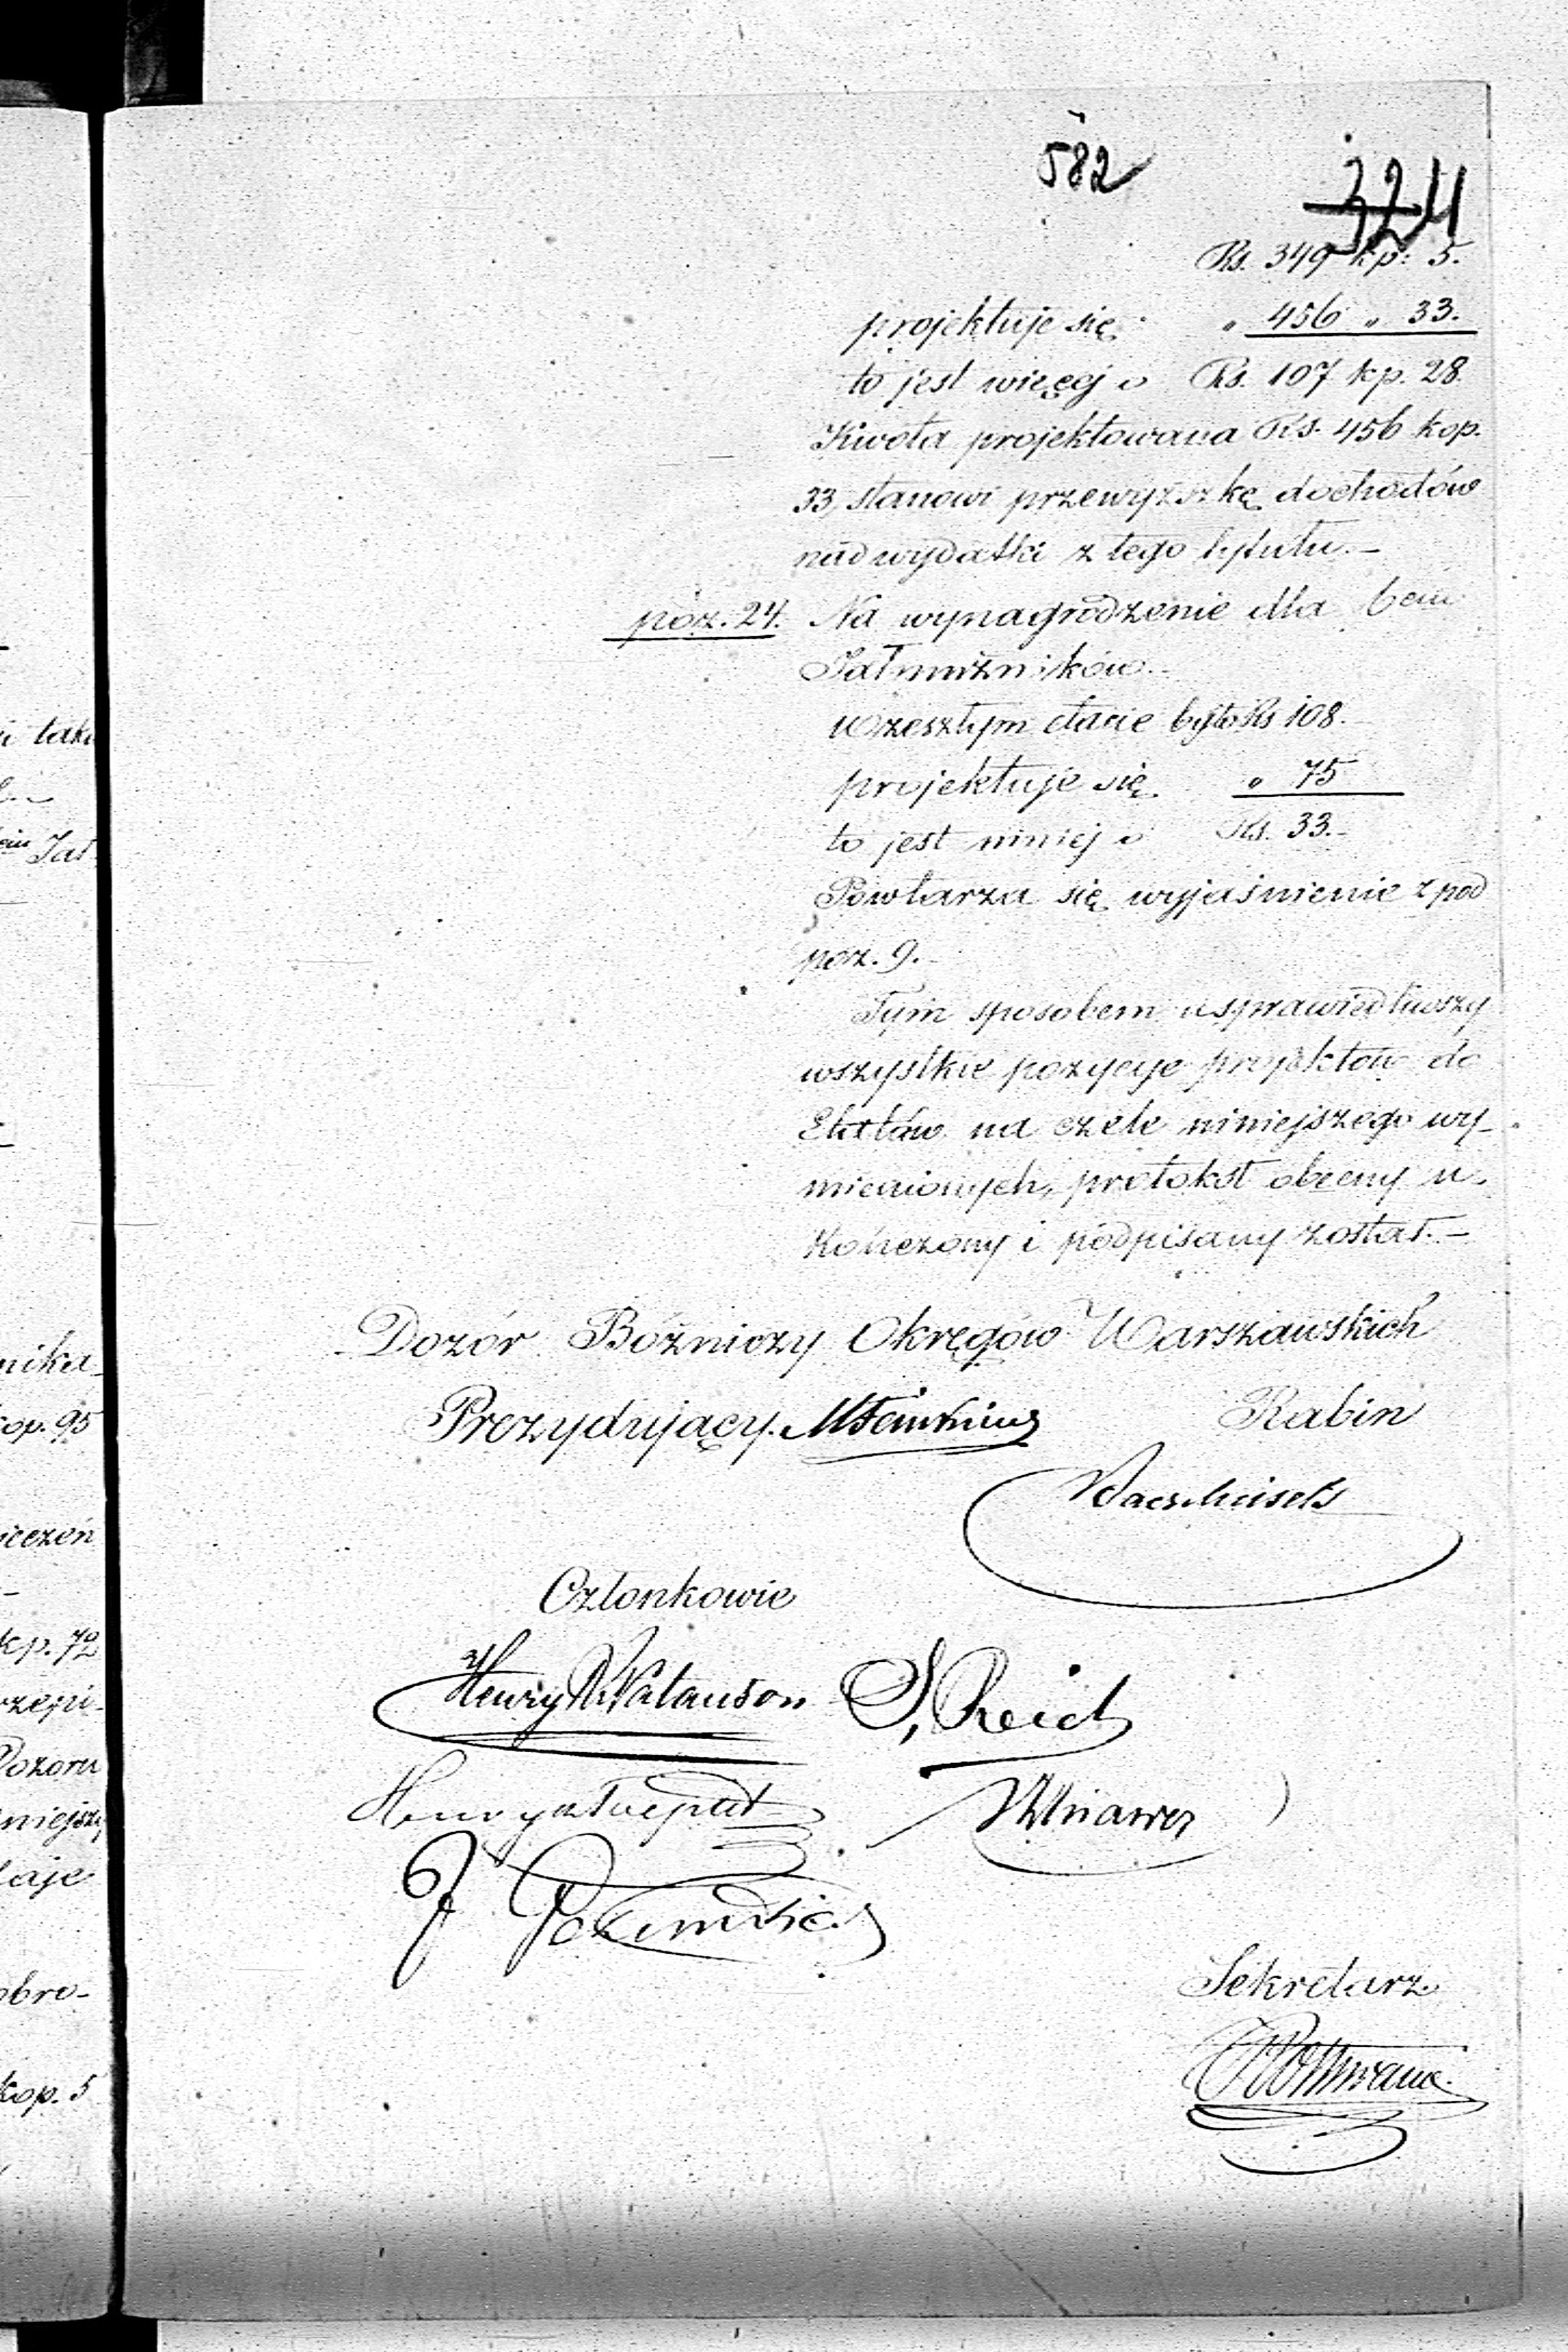 582
324
Rs. 349 kp: 5.
projektuje się " 456 " 33.
to jest więcej o Rs. 107 kp. 28.
Kwota projektowana Rs. 456 kop.
33, stanowi przewyższkę dochodów
nad wydatki z tego tytułu.—
poz. 24. Na wynagrodzenie dla
Jałmużników.—
W zeszłym etacie było Rs 108.
projektuje się " 75
to jest mniej o Rs. 33.—
Powtarza się wyjaśnienie z pod
poz. 9.—
Tym sposobem usprawiedliwszy
wszystkie pozycyje projektów do
Etatów na czele niniejszego wy-
mienionych, protokół obecny u-
kończony i podpisany został.—
Dozór Bóżniczy Okręgów Warszawskich
Prezydujący. Rabin
Członkowie
Henry Natanson S. Reich
Sekretarz
i taki
Jał
nika
kop. 95
iczeń
kp. 72
Dozoru
niejszy
daje
obro-
kop. 5